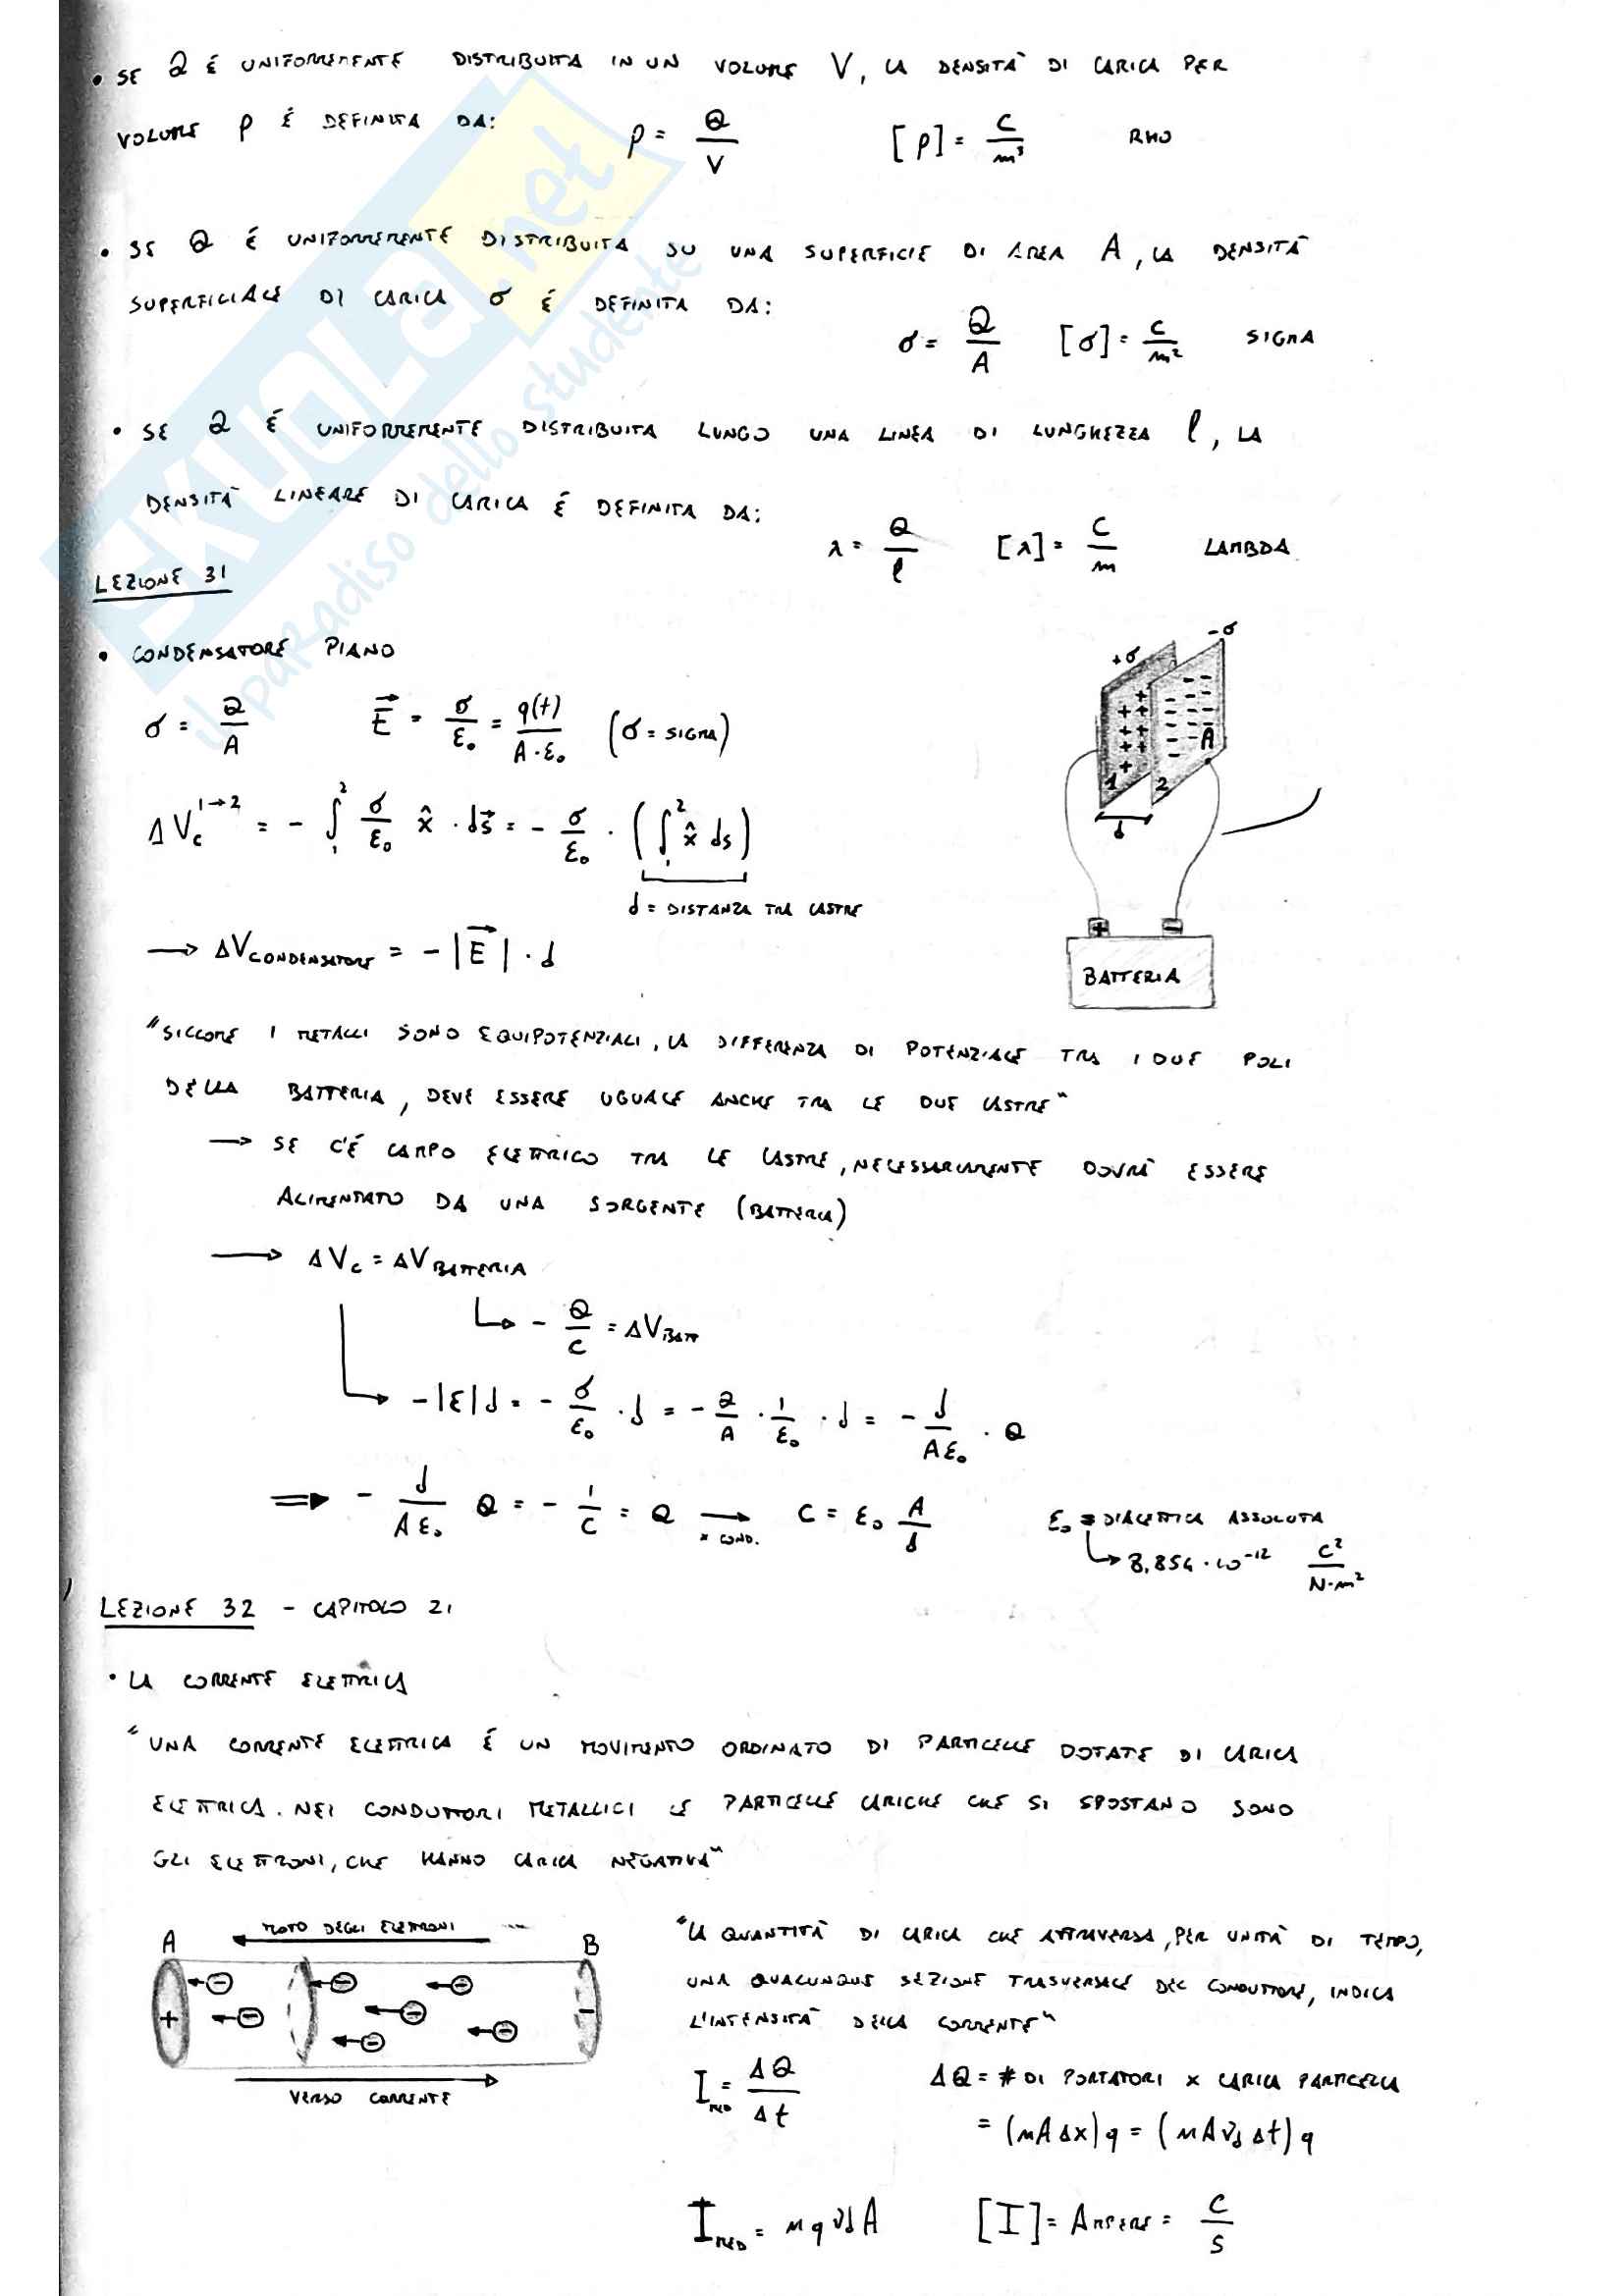 • SE Q É UNIFORMEMENTE DISTRIBUITA IN UN VOLUME V, LA DENSITÀ DI CARICA PER
VOLUME ρ É DEFINITA DA: ρ = Q/V [ρ] = C/m³ RHO
• SE Q É UNIFORMEMENTE DISTRIBUITA SU UNA SUPERFICIE DI AREA A, LA DENSITÀ
SUPERFICIALE DI CARICA σ É DEFINITA DA:
σ = Q/A [σ] = C/m² SIGMA
• SE Q É UNIFORMEMENTE DISTRIBUITA LUNGO UNA LINEA DI LUNGHEZZA l, LA
DENSITÀ LINEARE DI CARICA É DEFINITA DA:
λ = Q/l [λ] = C/m LAMBDA
SKUOLA.net
il paradiso dello studente
LEZIONE 31
• CONDENSATORE PIANO
σ = Q/A E⃗ = σ/ε₀ = q(t)/(A·ε₀) (σ = SIGMA)
ΔV_c^{1→2} = - ∫₁² σ/ε₀ x̂ · ds⃗ = - σ/ε₀ · (∫₁² x̂ ds)
d = DISTANZA TRA LASTRE
→ ΔV_CONDENSATORE = - |E⃗| · d
+σ -σ
1 2 A
d
+ -
BATTERIA
"SICCOME I METALLI SONO EQUIPOTENZIALI, LA DIFFERENZA DI POTENZIALE TRA I DUE POLI
DELLA BATTERIA, DEVE ESSERE UGUALE ANCHE TRA LE DUE LASTRE"
→ SE C'É CAMPO ELETTRICO TRA LE LASTRE, NECESSARIAMENTE DOVRÀ ESSERE
ALIMENTATO DA UNA SORGENTE (BATTERIA)
→ ΔV_c = ΔV_BATTERIA
↳ - Q/C = ΔV_BATT
↳ -|E|d = - σ/ε₀ · d = - Q/A · 1/ε₀ · d = - d/(Aε₀) · Q
⇒ - d/(Aε₀) Q = - 1/C = Q → x COND. C = ε₀ A/d
ε₀ = DIALETTICA ASSOLUTA
↳ 8,854 · 10⁻¹² C²/(N·m²)
LEZIONE 32 - CAPITOLO 21
• LA CORRENTE ELETTRICA
"UNA CORRENTE ELETTRICA É UN MOVIMENTO ORDINATO DI PARTICELLE DOTATE DI CARICA
ELETTRICA. NEI CONDUTTORI METALLICI LE PARTICELLE CARICHE CHE SI SPOSTANO SONO
GLI ELETTRONI, CHE HANNO CARICA NEGATIVA"
MOTO DEGLI ELETTRONI
A B
+ -
VERSO CORRENTE
"LA QUANTITÀ DI CARICA CHE ATTRAVERSA, PER UNITÀ DI TEMPO,
UNA QUALUNQUE SEZIONE TRASVERSALE DEL CONDUTTORE, INDICA
L'INTENSITÀ DELLA CORRENTE"
I_MED = ΔQ/Δt ΔQ = # DI PORTATORI x CARICA PARTICELLA
= (nAΔx)q = (nAv_dΔt)q
I_MED = n q v_d A [I] = AMPERE = C/S